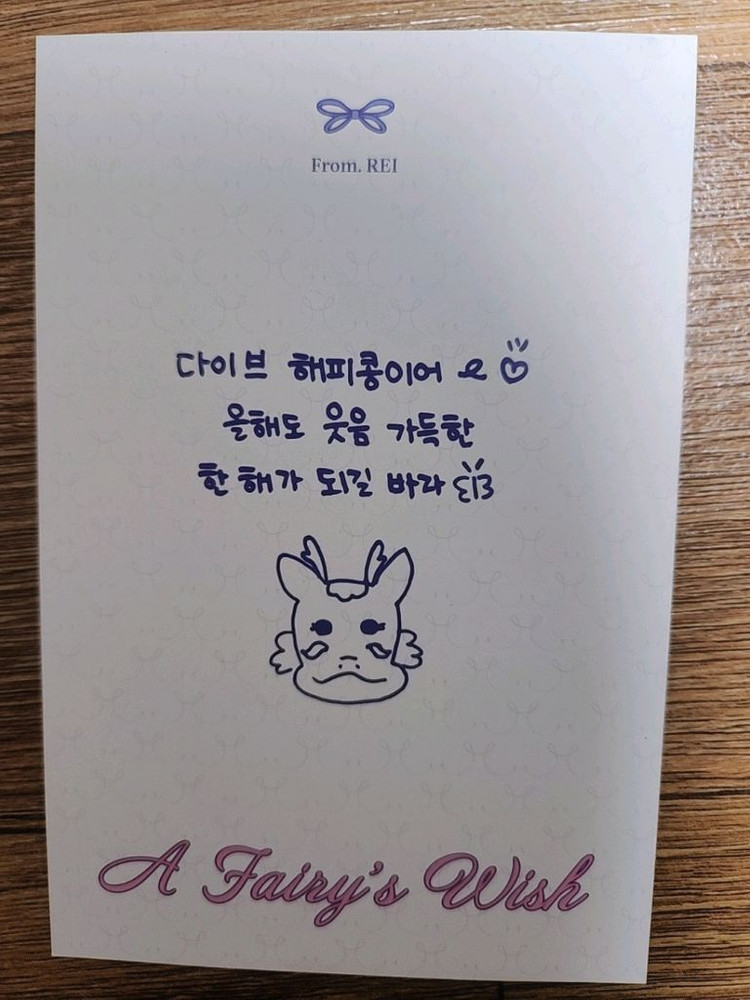 From. REI
다이브 해피콩이어 ~ ♡
올해도 웃음 가득한
한 해가 되길 바라
A Fairy's Wish